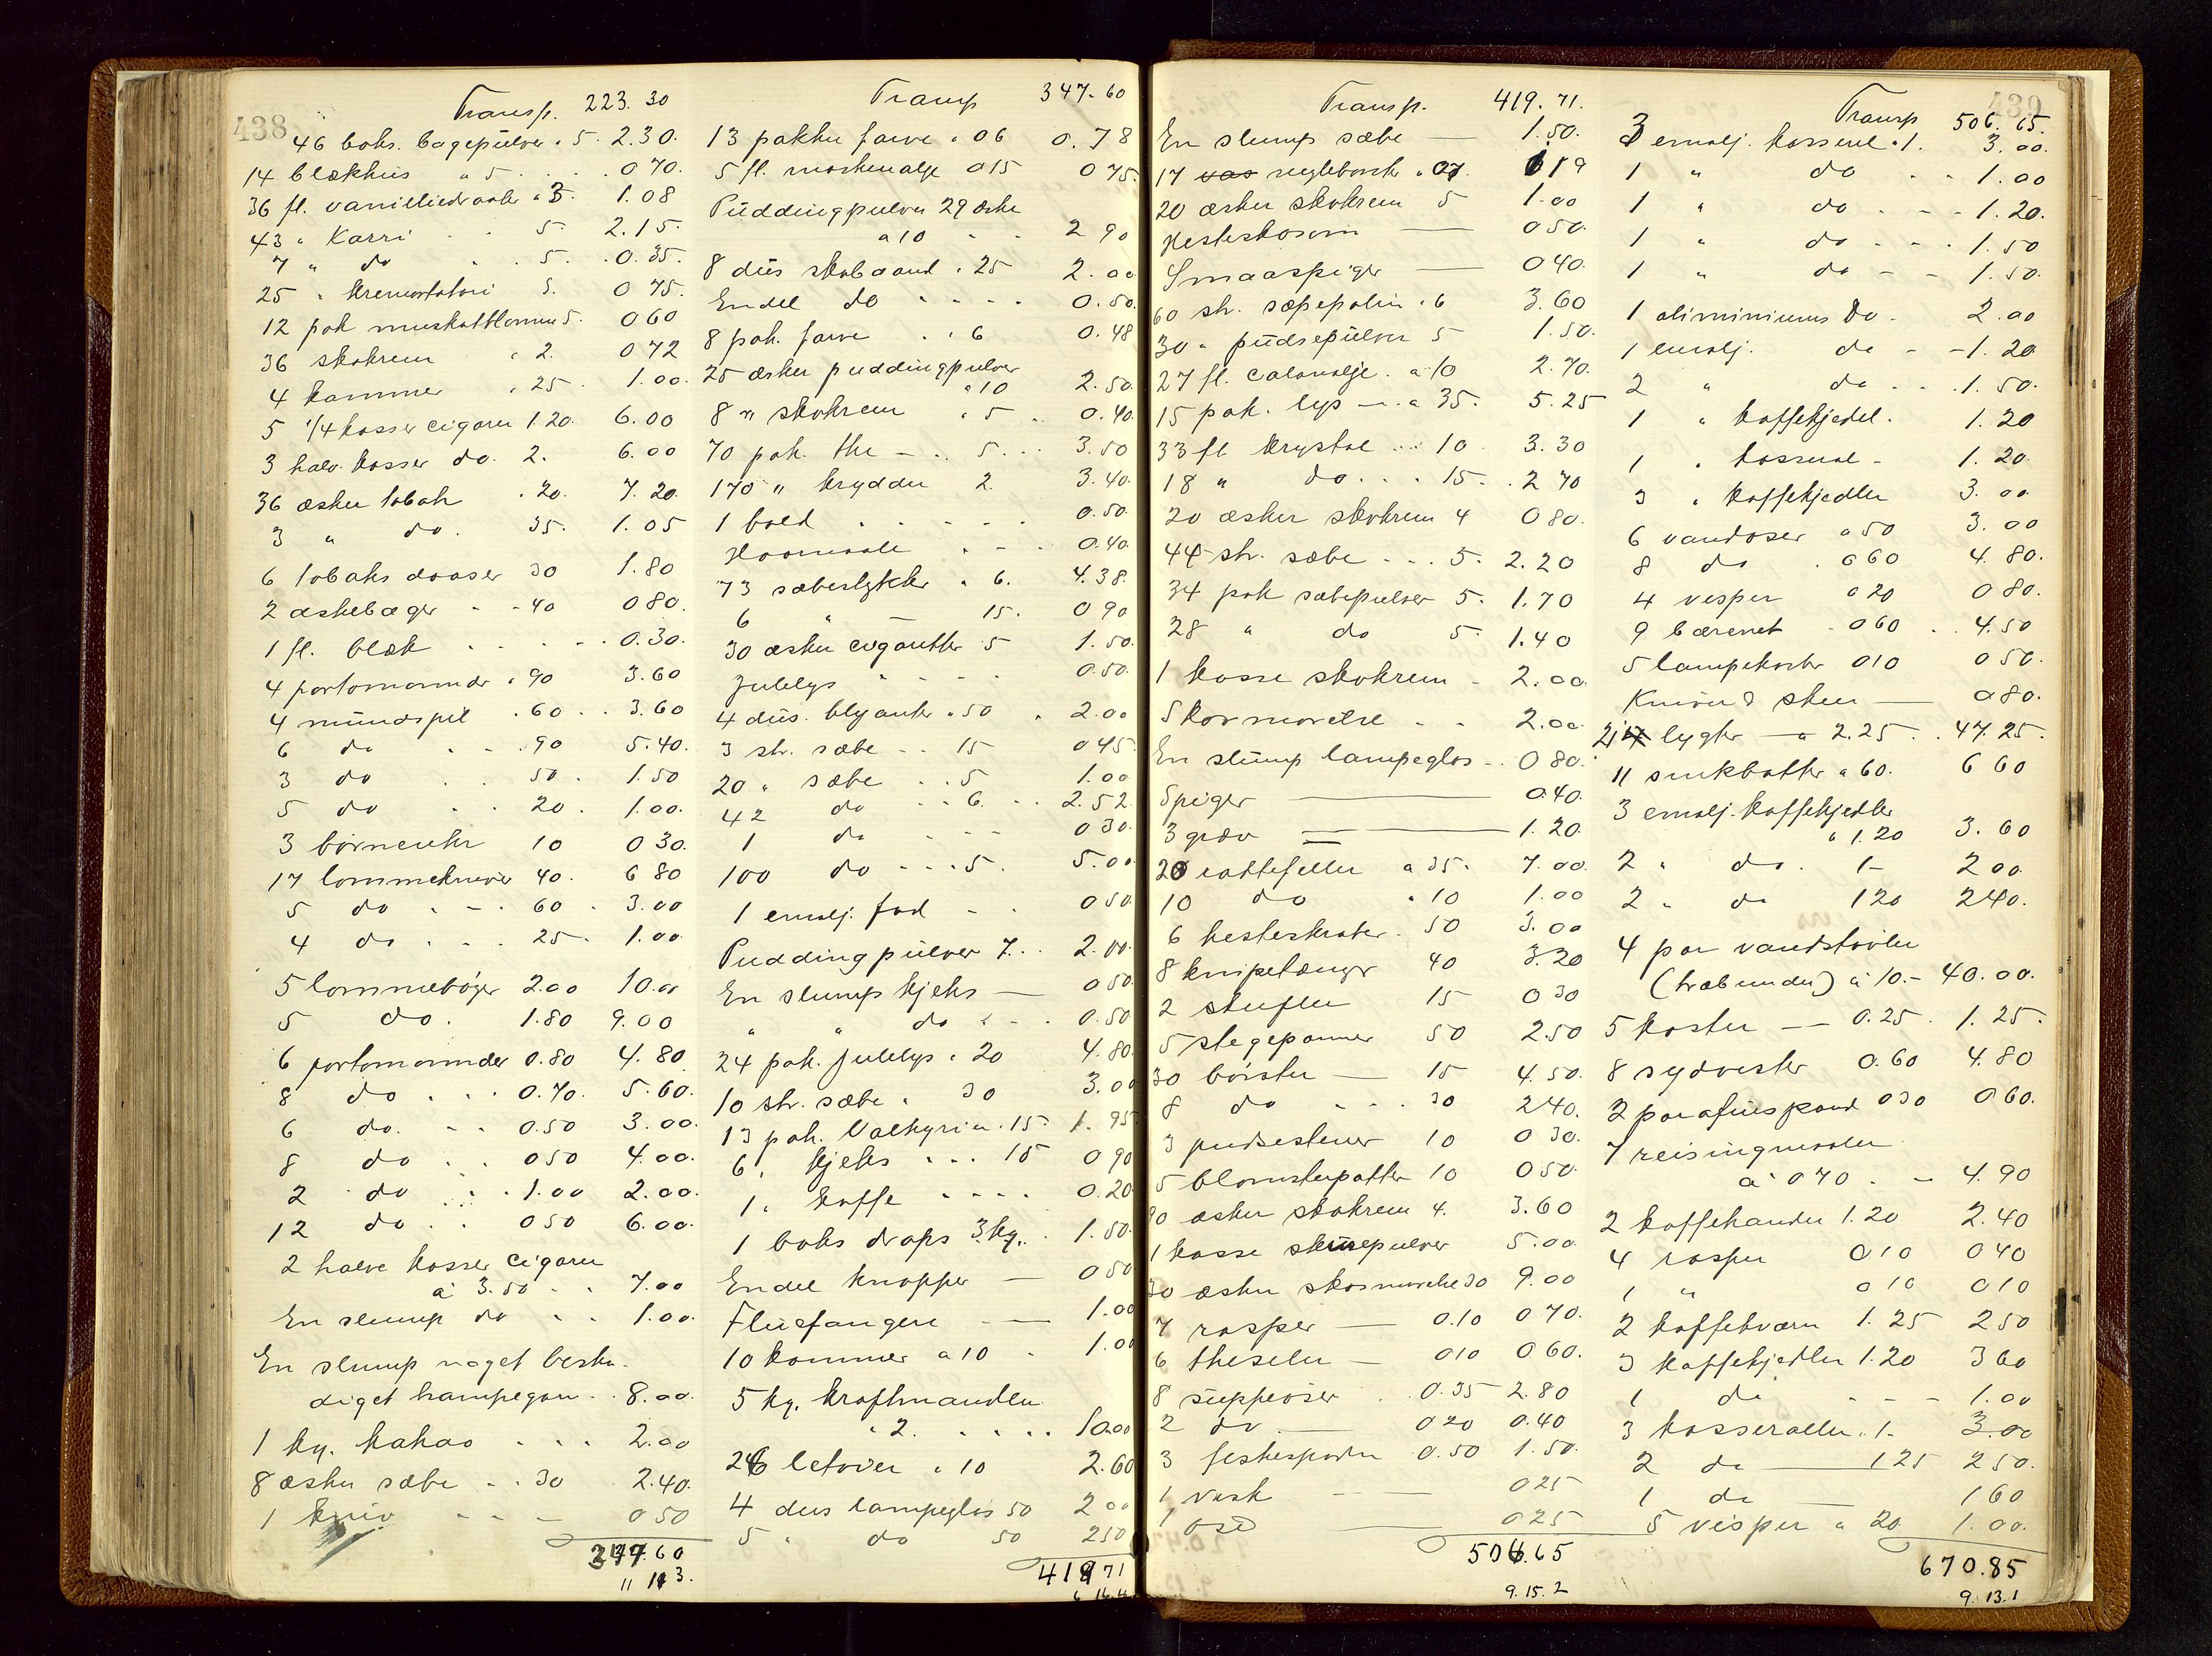 438
Transp. 223.30
46 boks. bagepulver " 5. 2.30.
14 blækhus " 5 . . . 0 70.
36 fl. vanilliedraaber " 3. 1.08
43 " Karri - - 5. 2.15.
7 " do . . 5. 0.35.
25 " kremortatari 5. 0 75.
12 pak muskatblomme 5. 0 60
36 skokrem " 2. 0 72
4 kammer " 25 1.00.
5 1/4 kasser cigarer 1.20. 6.00
3 halv. kasser do. 2. 6.00
36 æsker tobak " 20. 7.20.
3 " do. 35. 1.05
6 tobaks daaser 30 1.80
2 askebæger - - 40 0 80.
1 fl. blæk . . . . . 0.30.
4 portomonnæer " 90 3.60
4 mundspil " 60 . . 3.60
6 do - - 90 5.40.
3 do . . 50. 1.50
5 do . . 20. 1.00.
3 børneuhr 10 0 30.
17 lommekniver 40. 6 80
5 do . - . 60 . 3.00
4 do . . . 25. 1.00
5 lommebøger 2.00 10.00
5 do. 1.80 9.00
6 portomonnæer 0.80 4.80
8 do . . . 0.70. 5.60.
6 do. - - 0.50 3.00.
8 do . . . 0 50 4.00.
2 do . . . 1.00 2.00.
12 do . . 0 50 6.00.
2 halve kasser cigarer
a 3.50 . . 7.00
En slump do . . 1.00.
En slump noget beska-
diget hampegarn . . 8.00.
1 kg. kakao . . . 2.00
8 æsker sæbe . . 30 2.40.
1 kniv - - - 0 50
347.60
11 113.
Transp 347.60
13 pakker farve " 06 0.78
5 fl. maskenolje 0 15 0 75.
Puddingpulver 29 æsker
a 10 - - 2 90
8 dus skobaand " 25 2.00
Endel do . - - . 0.50.
8 pak. farve . " 6 0.48
25 æsker puddingpulver
" 10 2.50.
8 " skokrem " 5 . . 0.40.
70 pak. the - . . 5 . . . 3.50
170 " krydder 2. 3.40.
1 bold . - - - - 0.50.
Haarnaale . - - 0.40.
73 sæbestykker " 6. 4.38.
6 " — 15. 0 90
30 æsker cigaretter 5 1.50.
Julelys - - - 0.50.
4 dus. blyanter " 50 . 2.00
3 str. sæbe - - 15 0 45
20 " sæbe . . 5 1.00
42 do . . 6. . . 2.52
1 do - - - 0 30.
100 do - - . 5. 5.00
1 emalj. fad - . 0 50.
Puddingpulver 7. . . 2.00.
En slump kjeks — 0 50.
" " do . - . 0.50
24 pak. julelys " 20 4.80.
10 str. sæbe . 30 3.00
13 pak. Valkyria . 15. 1.95
6 " kjeks . . . 15 0 90
1 " kaffe . . . . 0.20
1 boks drops 3 kg. . 1.50.
Endel knapper — 0 50
Fluefangere — 1.00
10 kammer a 10 - 1.00
5 kg. kraftmandler
" 2. . . . . . 10.00
26 letøver " 10 2.60
4 dus lampeglas 50 2 00
5 " do 50 2 50
419 71
Transp. 419.71.
En slump sæbe — 1.50.
17 neglebørster " 07. 1 19
20 æsker skokrem 5 1.00
Hesteskosøm — 0 50.
Smaaspiger — 0 40.
60 str. sæpepolin " 6 3.60
30 " pudsepulver 5 1.50.
27 fl. calorolje. a 10 2.70.
15 pak. lys — . a 35. 5.25
33 fl krystal . . . 10 3.30
18 " do . . . 15. . 2 70
20 æsker skokrem 4 0 80.
44 str. sæbe . . . 5. 2.20
34 pak sæbepulver 5. 1.70
28 " do 5. 1.40
1 kasse skokrem - 2.00.
Skosmørelse . . 2.00
En slump lampeglas - . 0 80.
Spiger — 0.40.
3 græv — 1.20.
20 rottefeller a 35. 7.00.
10 do " 10 1.00
6 hesteskraber. 50 3.00
8 knipetænger 40 3.20
2 stufler 15 0 30
5 stegepanner 50 2.50
30 børster — 15 4.50.
8 do . . . 30 2 40.
3 pudsestener 10 0 30.
5 blomsterpotter 10 0 50.
90 æsker skokrem 4. 3.60
1 kasse skurepulver 5.00
30 æsker skosmørelse 30 9.00
7 rasper — 0.10 0 70.
6 thesiler — 0 10 0 60.
8 suppeøser . 0.35 2.80
2 do — 0 20 0.40
3 fiskespader 0.50 1.50.
1 vask — 0 25
1 øse — 0 25
506.65
9.15.2
439
Transp 506.65.
3 emalj. kasserol " 1. 3.00.
1 " do . - 1.00
1 " do . - - 1.20.
1 " do . - . 1.50
1 " do - - 1.50.
1 aliminiums do. 2.00
1 emalj. do - - 1.20
2 " do . . . 1.50.
1 " kaffekjedel. 1.20
1 " kasserol - 1.20
3 " kaffekjedler 3.00
6 vandøser a 50 3.00
8 do . a 60 4.80.
4 vesper a 20 0 80.
9 bærenet - 0 60 . . 4.50
5 lampekoster 0 10 0 50.
Kniver & skeer — 0 80.
21 lygter — a 2.25 . . 47.25.
11 sinkbøtter a 60. 6 60
3 emalj. kaffekjedler
" 1.20 3.60
2 " do. 1 - 2 00.
2 " do 1 20 2 40.
4 par vandstøvler
(træbunder) a 10.- 40.00.
5 koster — 0.25 . 1.25.
8 sydvester 0.60 4.80
2 parafinspand 0 30 0 60.
7 reisingmaaler
a 0 70 . - 4.90
2 kaffekander 1.20 2.40
4 rasper 0 10 0 40
1 " 0 10 0 10
2 kaffekværn 1.25 2 50
3 kaffekjedler 1.20 3 60
1 do - - - 1.00
3 kasseroller " 1.- 3.00
2 do — 1 25 2 50.
1 do — 1 60
5 visper " 20 1.00.
670.85
9.13.1